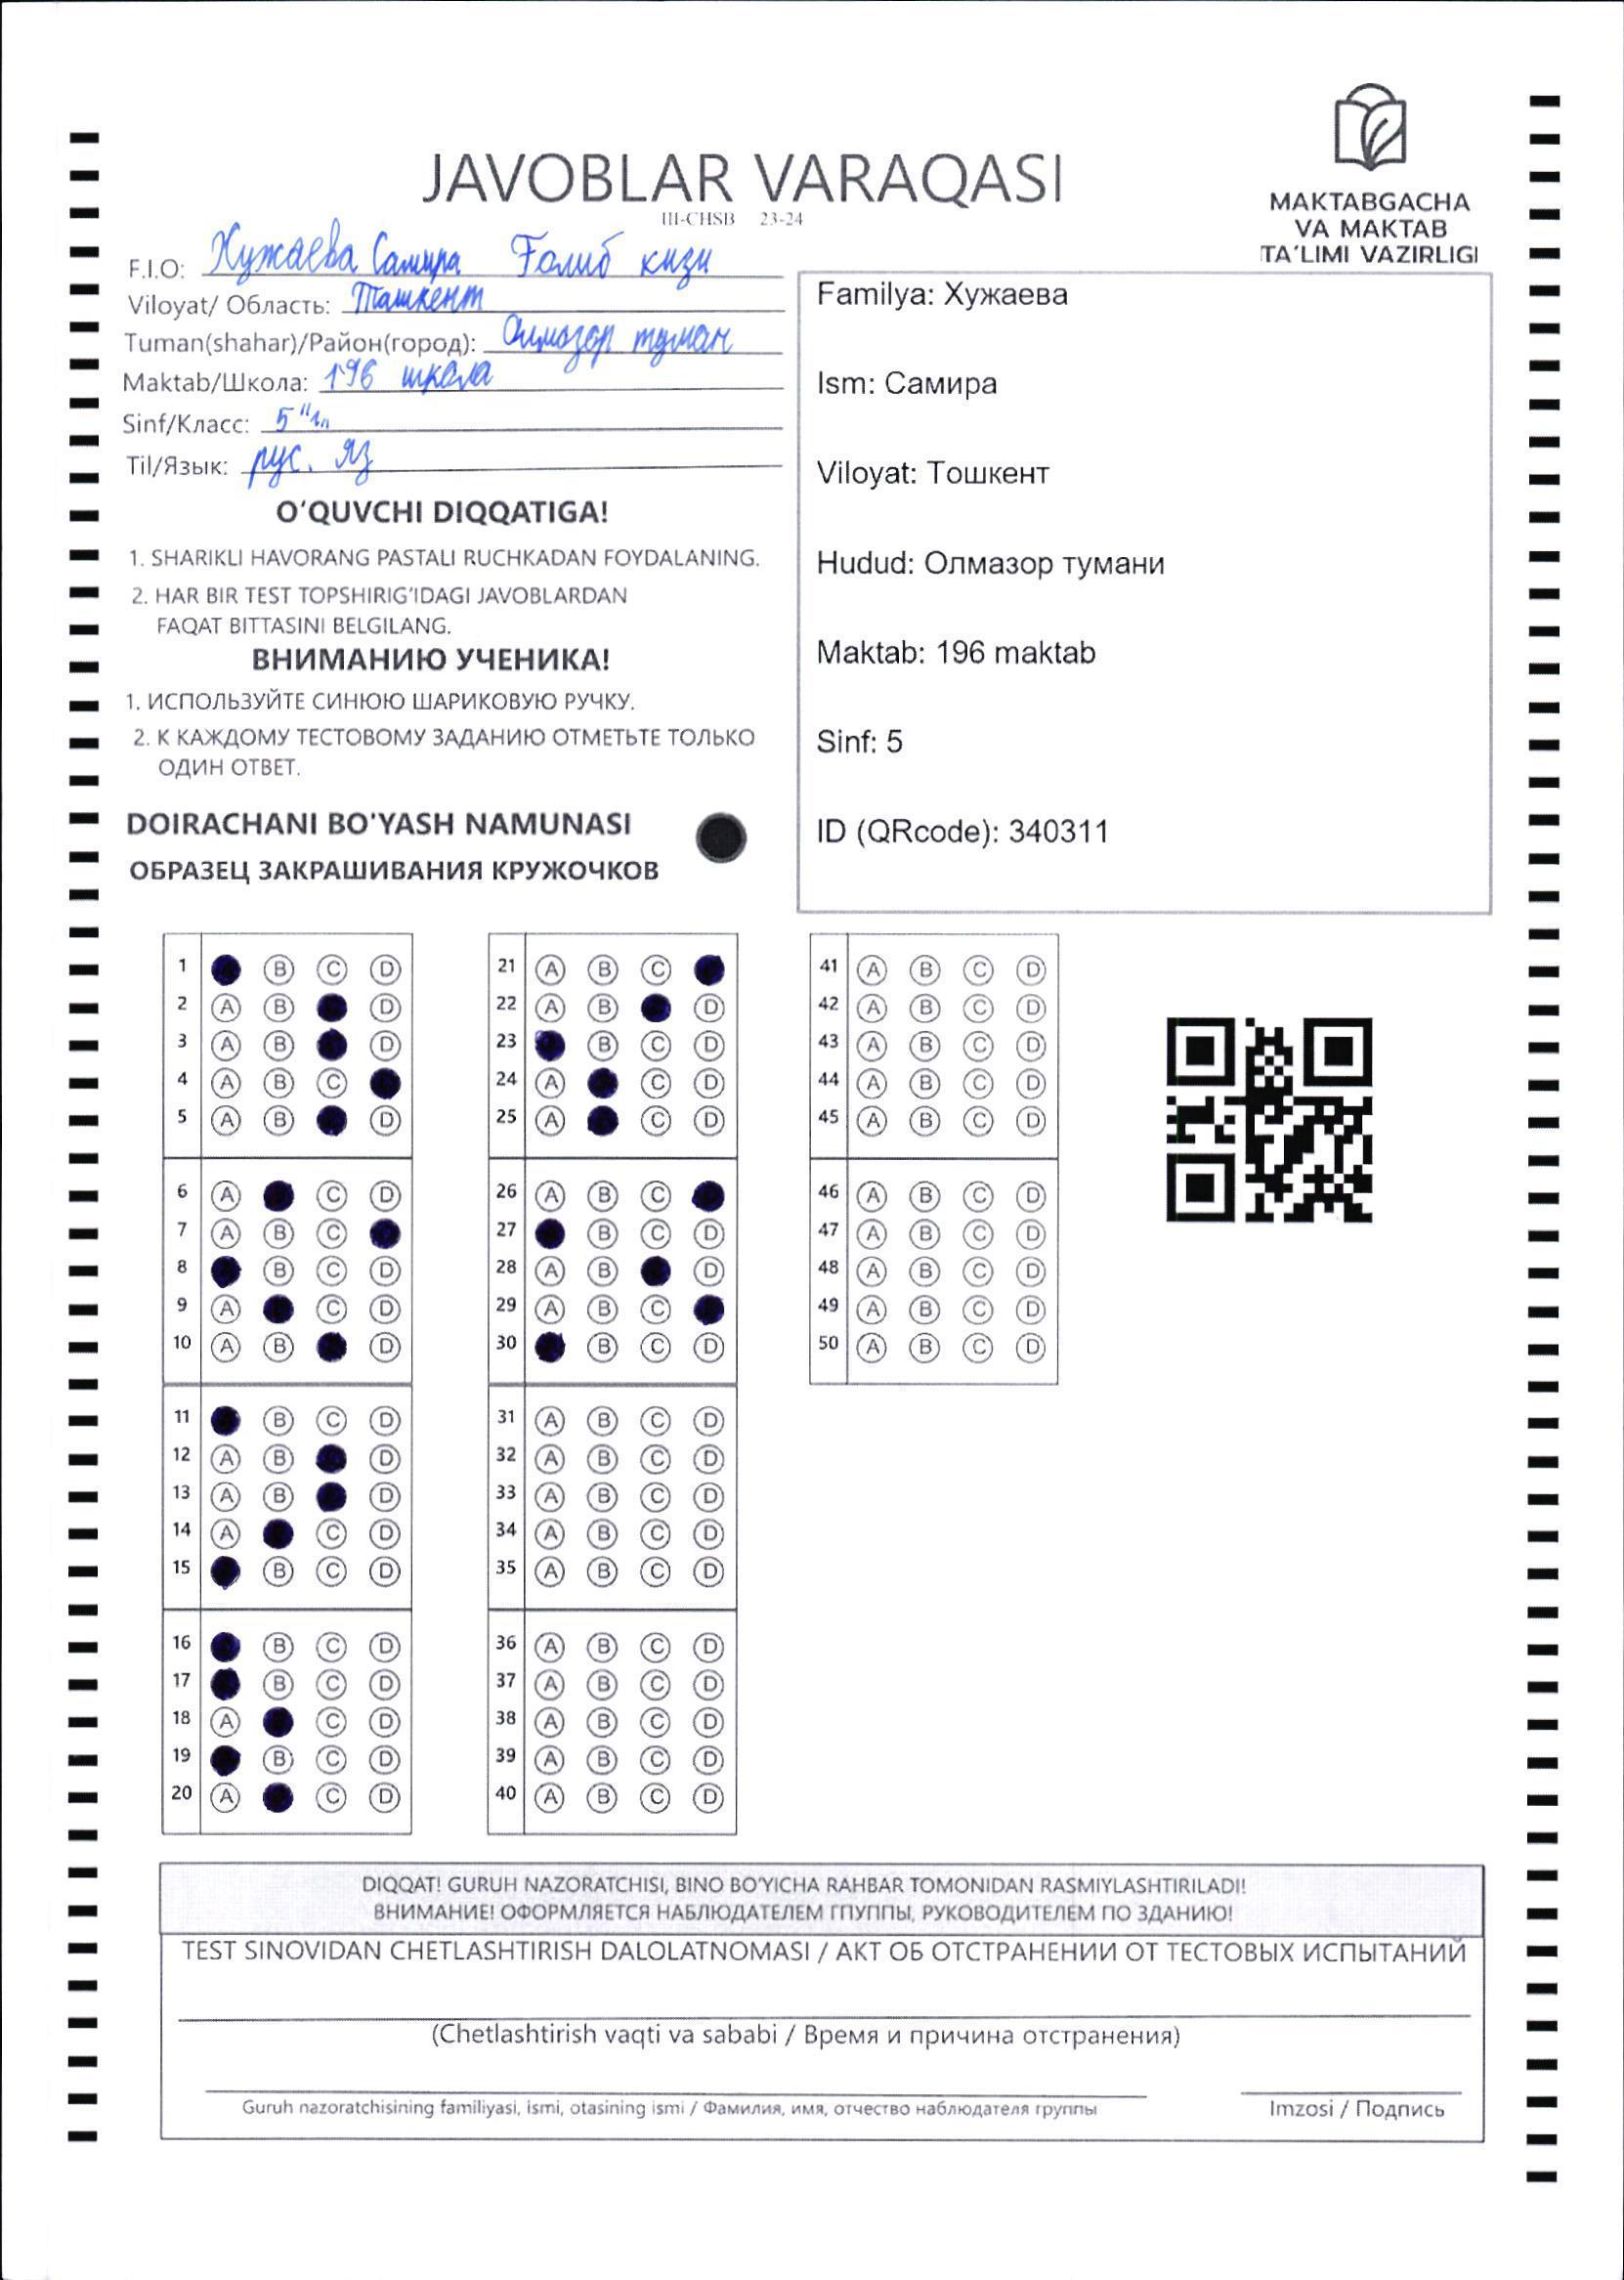 JAVOBLAR VARAQASI
III-CHSB 23-24
MAKTABGACHA
VA MAKTAB
TA'LIMI VAZIRLIGI
F.I.O: Хужаева Самира Ғолиб кизи
Viloyat/ Область: Ташкент
Tuman(shahar)/Район(город): Олмазор туман
Maktab/Школа: 196 школа
Sinf/Класс: 5
Til/Язык: рус. яз
O'QUVCHI DIQQATIGA!
1. SHARIKLI HAVORANG PASTALI RUCHKADAN FOYDALANING.
2. HAR BIR TEST TOPSHIRIG'IDAGI JAVOBLARDAN
FAQAT BITTASINI BELGILANG.
ВНИМАНИЮ УЧЕНИКА!
1. ИСПОЛЬЗУЙТЕ СИНЮЮ ШАРИКОВУЮ РУЧКУ.
2. К КАЖДОМУ ТЕСТОВОМУ ЗАДАНИЮ ОТМЕТЬТЕ ТОЛЬКО
ОДИН ОТВЕТ.
DOIRACHANI BO'YASH NAMUNASI
ОБРАЗЕЦ ЗАКРАШИВАНИЯ КРУЖОЧКОВ
Familya: Хужаева
Ism: Самира
Viloyat: Тошкент
Hudud: Олмазор тумани
Maktab: 196 maktab
Sinf: 5
ID (QRcode): 340311
1 B C D
2 A B D
3 A B D
4 A B C
5 A B D
6 A C D
7 A B C
8 B C D
9 A C D
10 A B D
11 B C D
12 A B D
13 A B D
14 A C D
15 B C D
16 B C D
17 B C D
18 A C D
19 B C D
20 A C D
21 A B C
22 A B D
23 B C D
24 A C D
25 A C D
26 A B C
27 B C D
28 A B D
29 A B C
30 B C D
31 A B C D
32 A B C D
33 A B C D
34 A B C D
35 A B C D
36 A B C D
37 A B C D
38 A B C D
39 A B C D
40 A B C D
41 A B C D
42 A B C D
43 A B C D
44 A B C D
45 A B C D
46 A B C D
47 A B C D
48 A B C D
49 A B C D
50 A B C D
DIQQAT! GURUH NAZORATCHISI, BINO BO'YICHA RAHBAR TOMONIDAN RASMIYLASHTIRILADI!
ВНИМАНИЕ! ОФОРМЛЯЕТСЯ НАБЛЮДАТЕЛЕМ ГПУППЫ, РУКОВОДИТЕЛЕМ ПО ЗДАНИЮ!
TEST SINOVIDAN CHETLASHTIRISH DALOLATNOMASI / АКТ ОБ ОТСТРАНЕНИИ ОТ ТЕСТОВЫХ ИСПЫТАНИЙ
(Chetlashtirish vaqti va sababi / Время и причина отстранения)
Guruh nazoratchisining familiyasi, ismi, otasining ismi / Фамилия, имя, отчество наблюдателя группы
Imzosi / Подпись